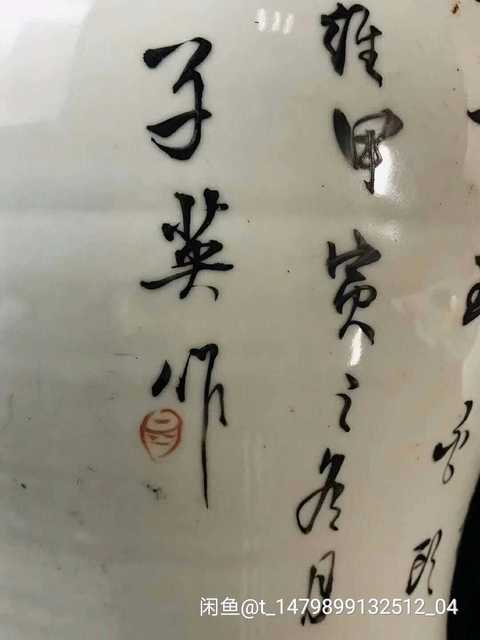 維甲寅之冬月
子英作
闲鱼@t_1479899132512_04